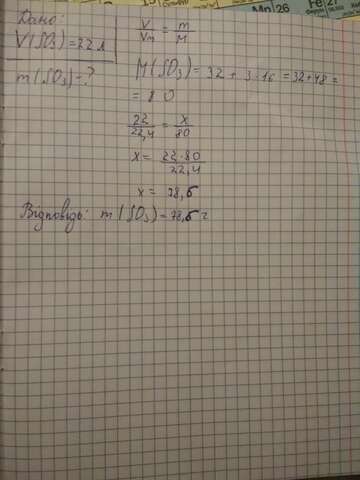 Mn 26
Fe 27
Дано:
V(SO₃)=22 л
m(SO₃)-?
V/Vm = m/M
M(SO₃)= 32 + 3·16 = 32+48 =
= 80
22/22,4 = x/80
x= 22·80/22,4
x= 78,5
Відповідь: m(SO₃)=78,5 г